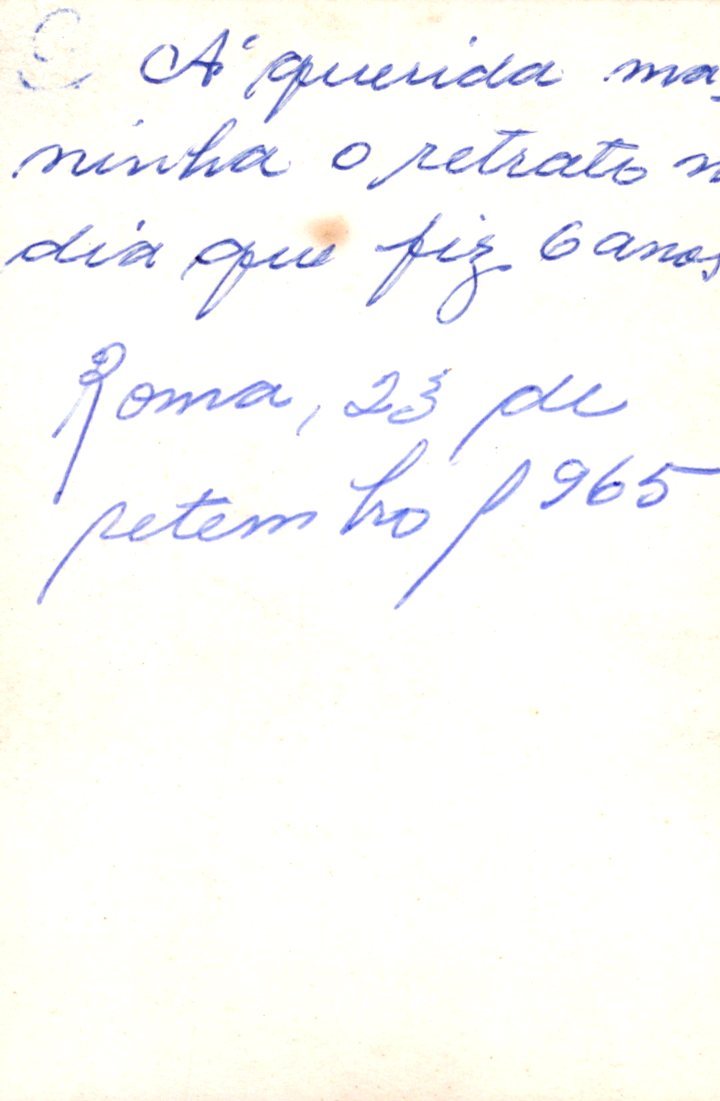 A' querida ma-
ninha o retrato n
dia que fiz 6 anos
Roma, 23 de
setembro 1965